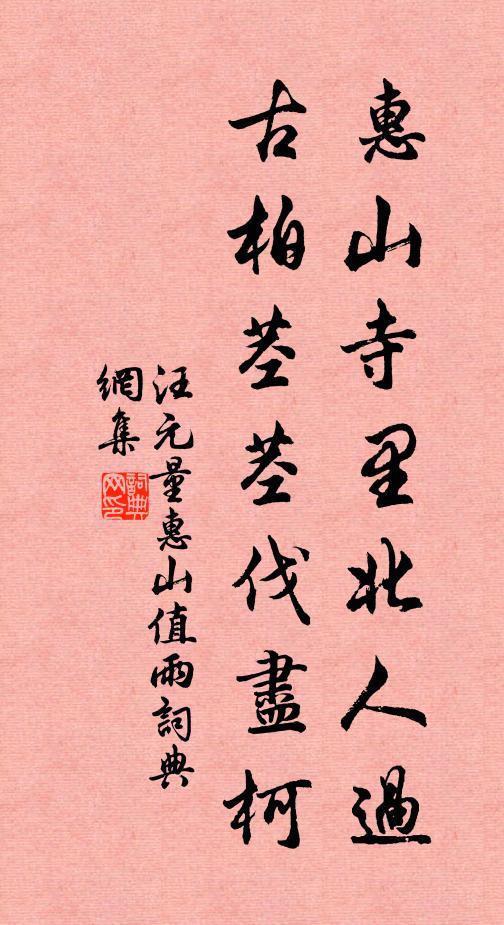 惠山寺里北人過
古柏茎茎伐盡柯
汪元量惠山值雨詞典
網集
詞典
网印